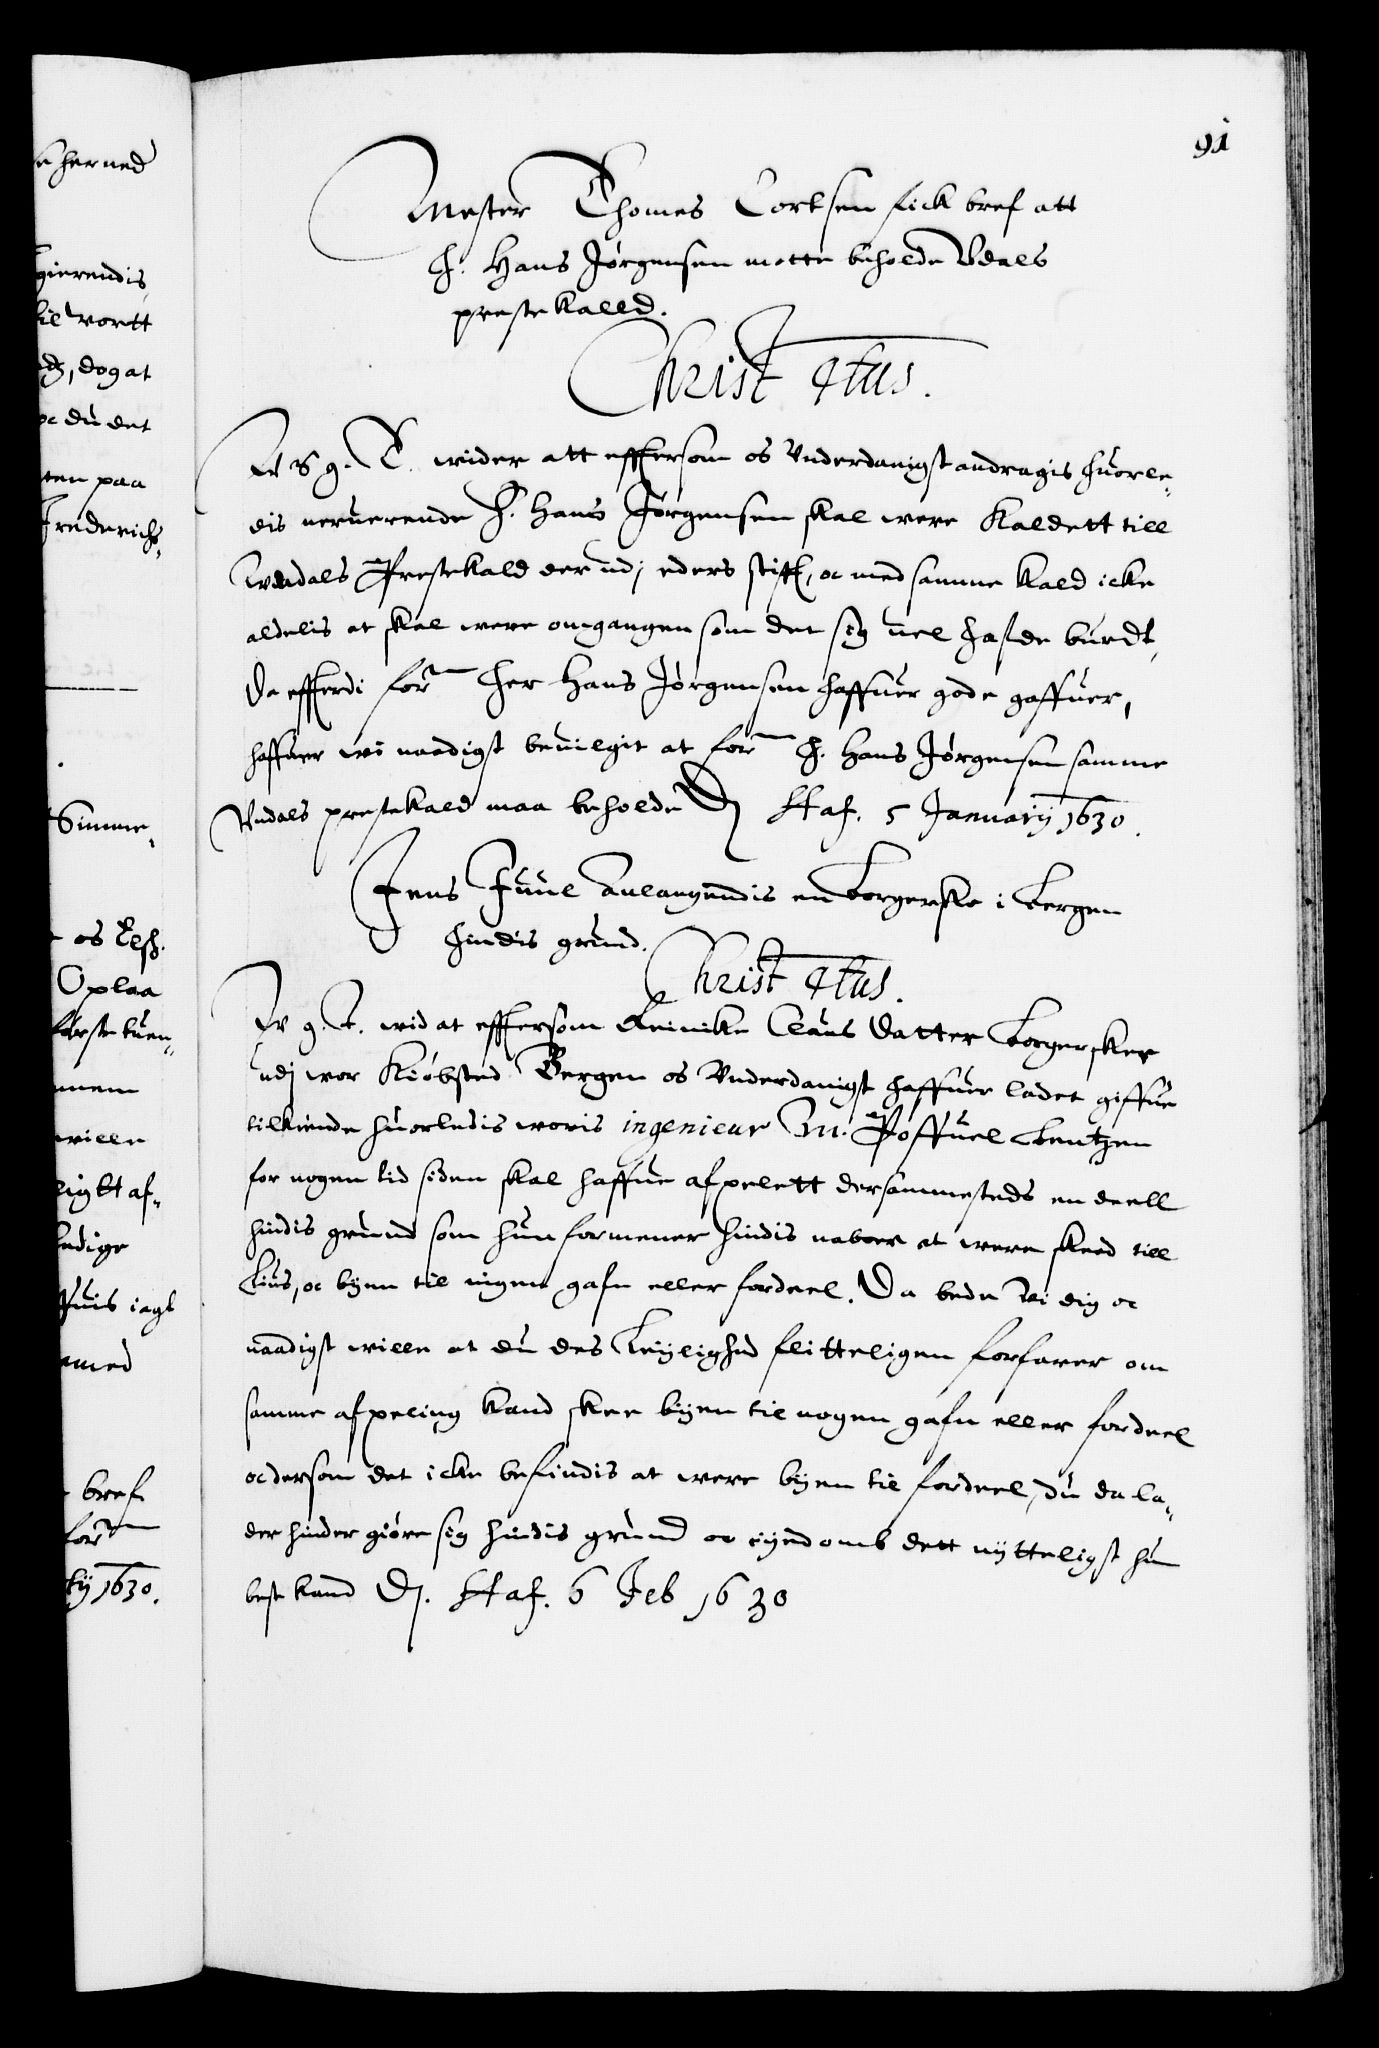 91
Mester Thomes Cortsen fick bref att
H. Hans Jørgensen motte beholde Vdals
prestekalld.
Christ 4tus.
W S g. T. wider att effersom os Vnderdanigst andragis huorle¬
dis neruerende H. Hans Jørgensen skal were Kaldett till
Wdals Prestekald der udj eders stift, oc med samme kald icke
aldelis at skal were omgangen som det sig uel hafde burdt,
Da efferdi forn Her Hans Jørgensen haffuer gode gaffuer,
haffuer wi naadigst beuilgit at forn H. Hans Jørgensen samme
Vndals prestekald maa beholde Dj Haf. 5 Januarij 1630.
Jens Juul anlangendis en borgerske i Bergen
hindis grund.
Christ 4tus.
W g. T. wid at effersom Reinike Claus Datter Borgersker
udj wor Kiøbsted Bergen os Vnderdanigst haffuer ladet giffue
tilkiende huorledis woris ingenieur M. Poffuel Bentzen
for nogen tid siden skal haffue afpelett dersammesteds en deell
hindis grund som hun formener hindis naboer at were skeed till
Lius, oc byen til ingen gafn eller fordeel. Da bede Vi dig oc
naadigst wille at du des Leijlighed flitteligen forfarer om
samme afpeling kand skee byen til nogen gafn eller fordeel
oc dersom det icke befindis at were byen til fordeel, du da la¬
der hinder giøre sig hindis grund oc eijendomb dett nytteligst hun
best kand Dj. Haf. 6 Feb 1630
herned
gierendis
til vortt
dog at
oc du det
ten paa
Frederichs¬
Simme¬
os Elsk.
Oplaa
første kuen¬
wille
ligtt af¬
ledige
huis iagt
med
bref
forn
ij 1630.